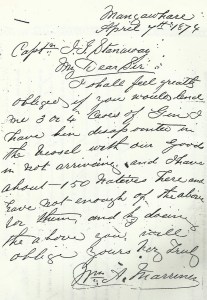 Mangawhare
April 7th 1874
Captn J. E. Stanaway
My Dear Sir
I shall feel greatly
obliged if you would lend
me 3 or 4 Cases of Gin I
have bin disapointed in
the vessel with our goods
in not arriving and I have
about 150 Natives here and
have not enough of the above
for them, and by doeing
the above you will
oblige yours very truly
Wm A. Marriner